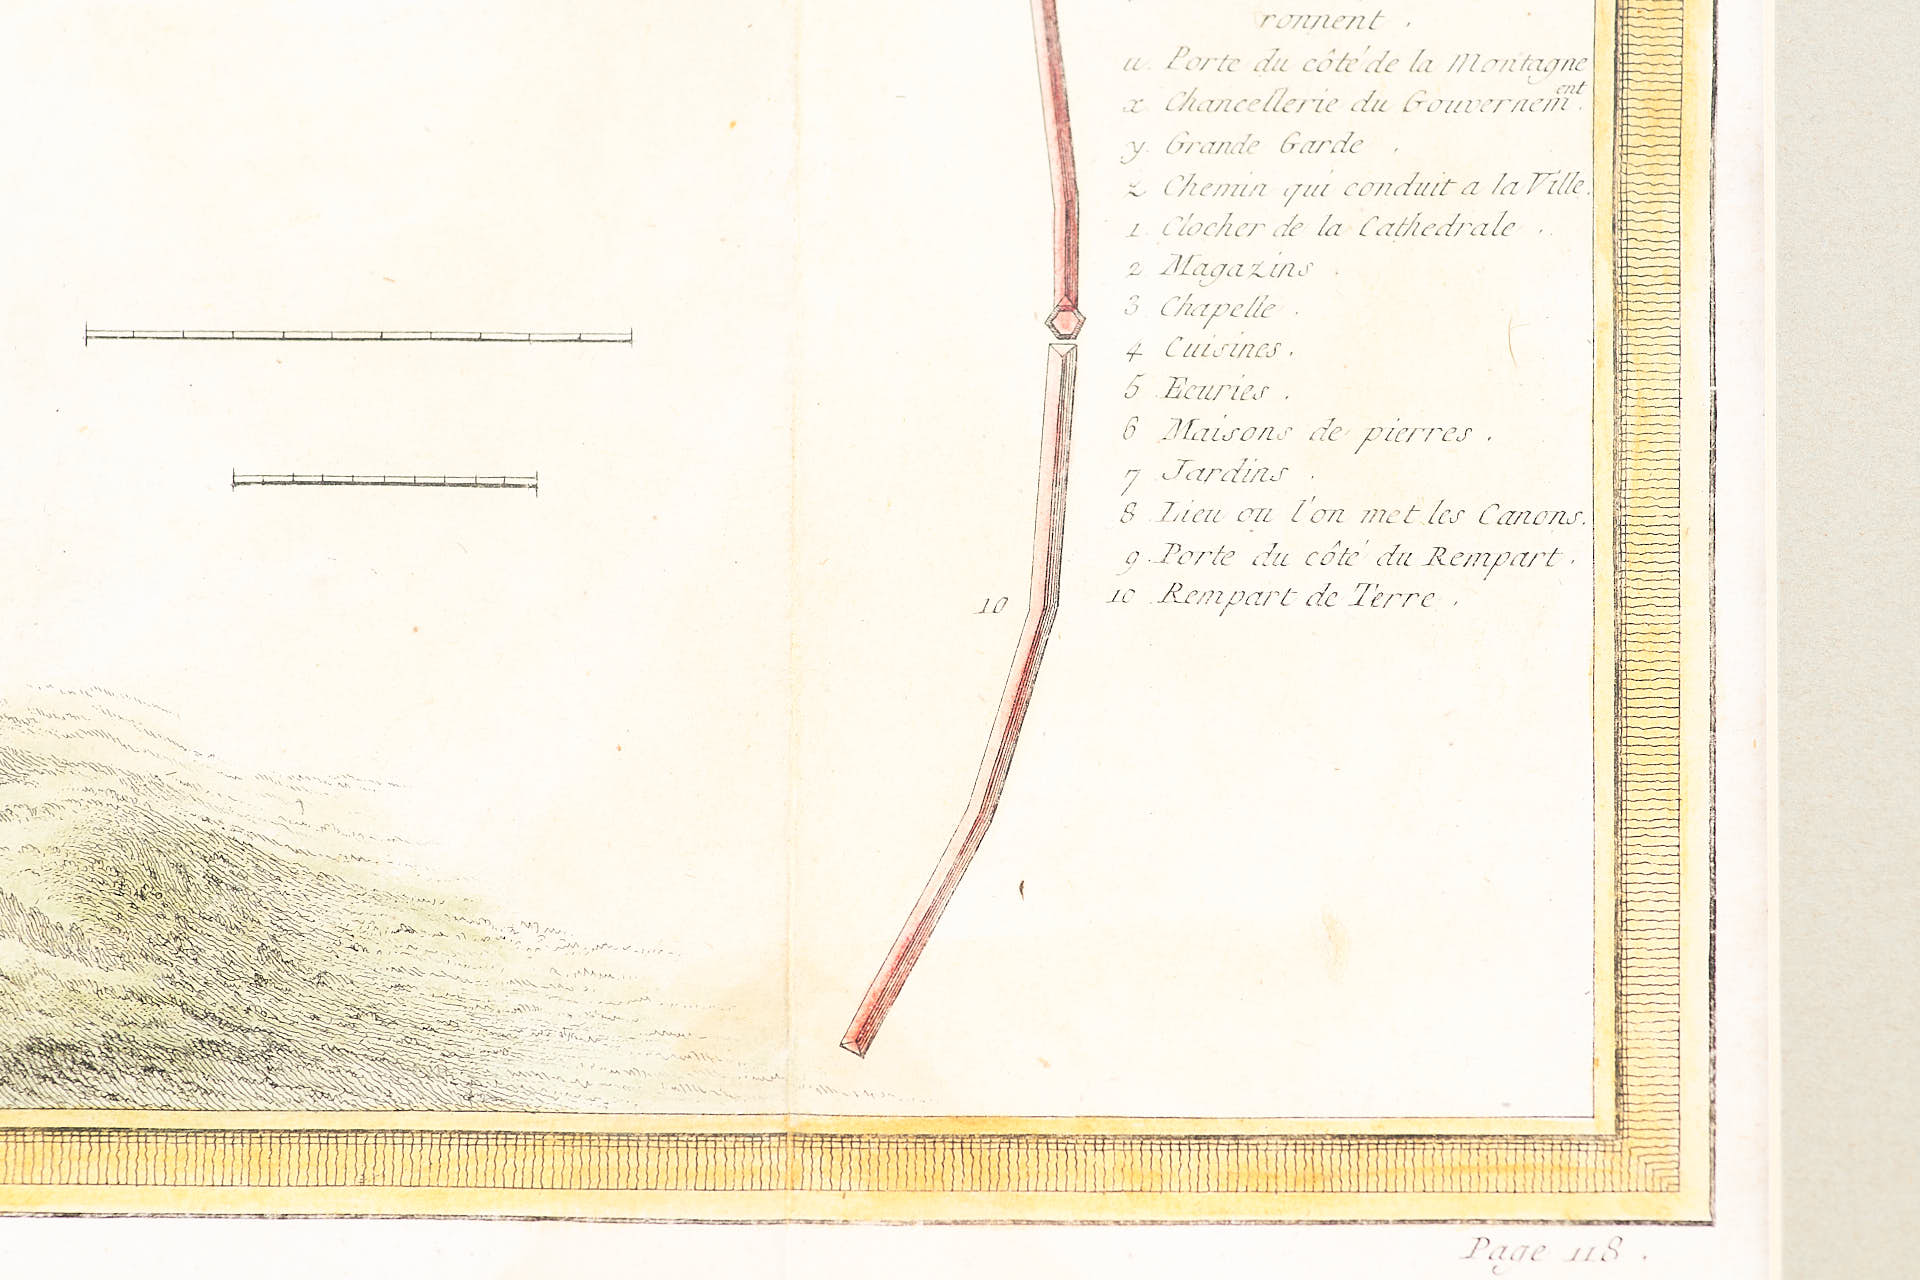 ronnent .
u. Porte du côté de la Montagne
x Chancellerie du Gouvernem.ent
y. Grande Garde .
z Chemin qui conduit a la Ville.
1. Clocher de la Cathedrale .
2 Magazins .
3 Chapelle .
4 Cuisines .
5 Ecuries .
6 Maisons de pierres .
7 Jardins .
8 Lieu ou l'on met les Canons.
9. Porte du côté du Rempart .
10 Rempart de Terre .
10
Page 118 .